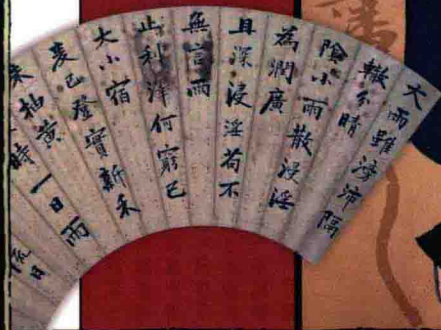 大雨雖滂沛隔
轍分晴
陰小雨散浸淫
為潤廣
且深浸淫苟不
無言雨
止利澤何窮已
大小宿
麦已登實新禾
未抽黃一日雨
時
流日